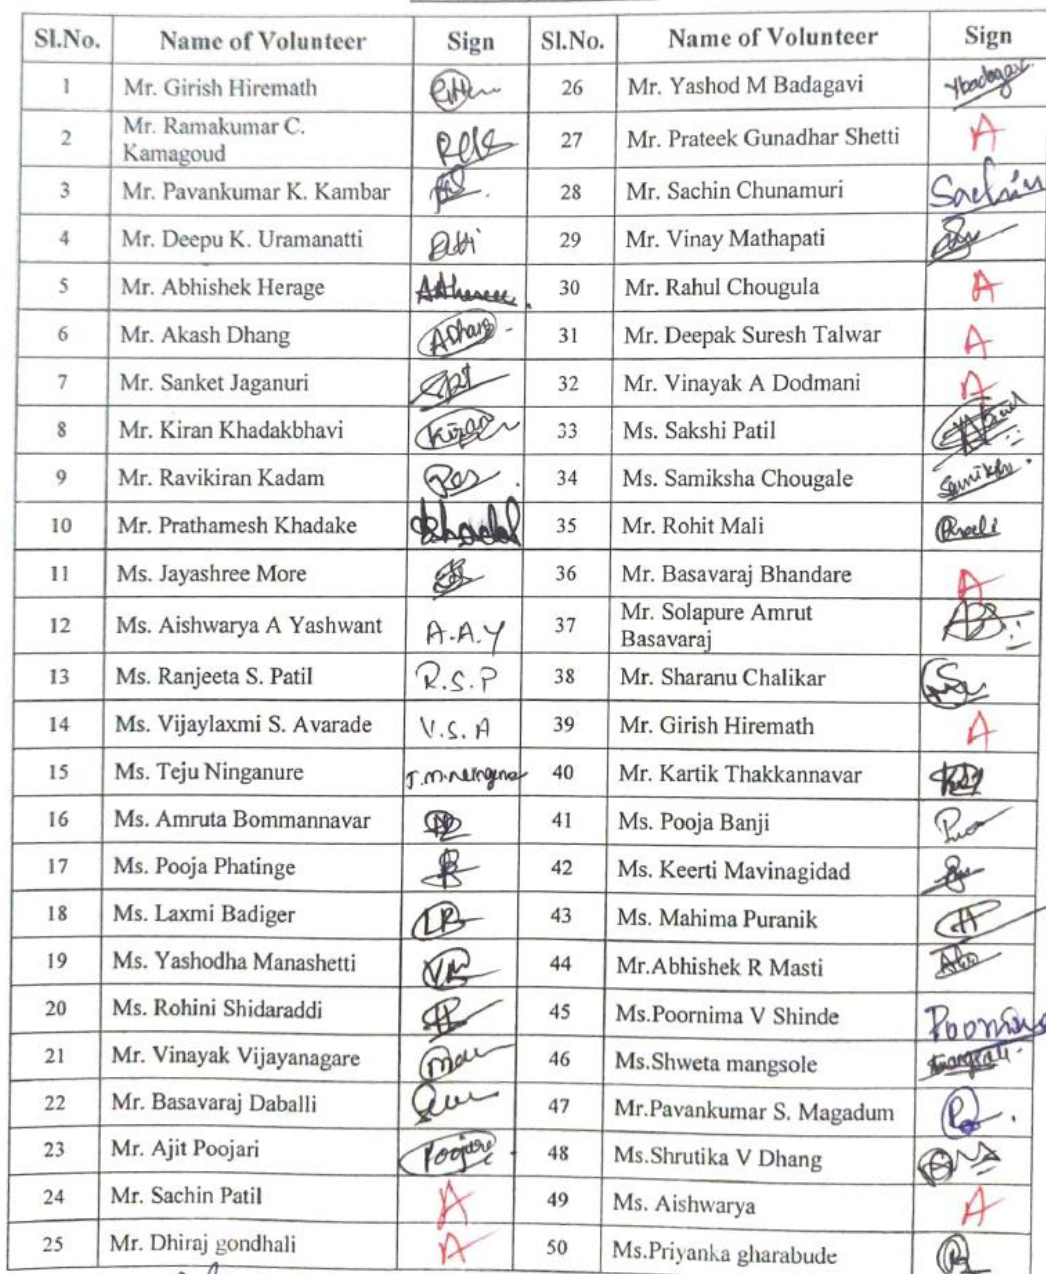 Sl.No. Name of Volunteer Sign Sl.No. Name of Volunteer Sign
1 Mr. Girish Hiremath 26 Mr. Yashod M Badagavi Ybadagavi
2 Mr. Ramakumar C. Kamagoud 27 Mr. Prateek Gunadhar Shetti A
3 Mr. Pavankumar K. Kambar 28 Mr. Sachin Chunamuri Sachin
4 Mr. Deepu K. Uramanatti 29 Mr. Vinay Mathapati
5 Mr. Abhishek Herage 30 Mr. Rahul Chougula A
6 Mr. Akash Dhang ADhang 31 Mr. Deepak Suresh Talwar A
7 Mr. Sanket Jaganuri 32 Mr. Vinayak A Dodmani A
8 Mr. Kiran Khadakbhavi Kiran 33 Ms. Sakshi Patil
9 Mr. Ravikiran Kadam 34 Ms. Samiksha Chougale
10 Mr. Prathamesh Khadake 35 Mr. Rohit Mali
11 Ms. Jayashree More 36 Mr. Basavaraj Bhandare A
12 Ms. Aishwarya A Yashwant A.A.Y 37 Mr. Solapure Amrut Basavaraj
13 Ms. Ranjeeta S. Patil R.S.P 38 Mr. Sharanu Chalikar
14 Ms. Vijaylaxmi S. Avarade V.S.A 39 Mr. Girish Hiremath A
15 Ms. Teju Ninganure 40 Mr. Kartik Thakkannavar
16 Ms. Amruta Bommannavar 41 Ms. Pooja Banji
17 Ms. Pooja Phatinge 42 Ms. Keerti Mavinagidad
18 Ms. Laxmi Badiger 43 Ms. Mahima Puranik
19 Ms. Yashodha Manashetti 44 Mr.Abhishek R Masti
20 Ms. Rohini Shidaraddi 45 Ms.Poornima V Shinde
21 Mr. Vinayak Vijayanagare 46 Ms.Shweta mangsole
22 Mr. Basavaraj Daballi 47 Mr.Pavankumar S. Magadum
23 Mr. Ajit Poojari 48 Ms.Shrutika V Dhang
24 Mr. Sachin Patil A 49 Ms. Aishwarya A
25 Mr. Dhiraj gondhali A 50 Ms.Priyanka gharabude